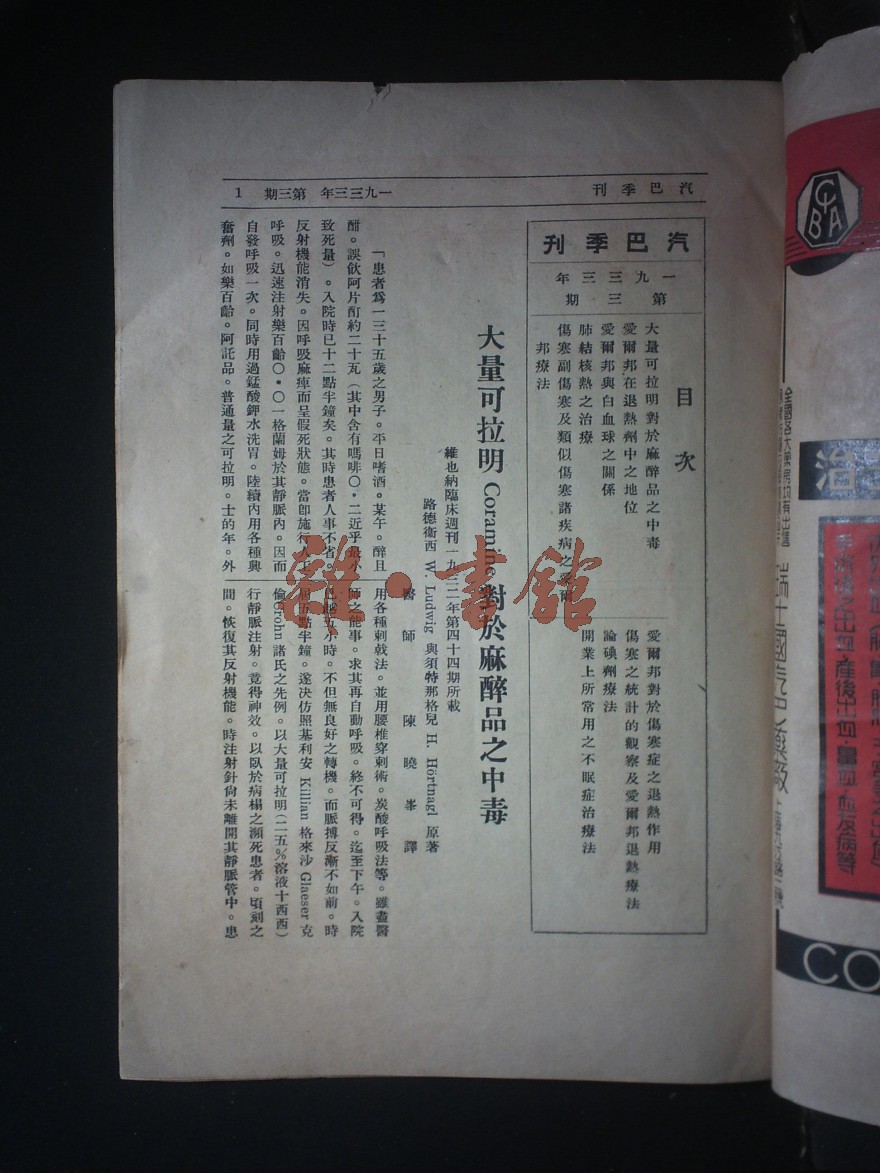 汽巴季刊
一九三三年 第三期 1
汽巴季刊
一九三三年
第三期
目次
大量可拉明對於麻醉品之中毒
愛爾邦在退熱劑中之地位
愛爾邦與白血球之關係
肺結核熱之治療
傷寒副傷寒及類似傷寒諸疾病之愛爾
邦療法
愛爾邦對於傷寒症之退熱作用
傷寒之統計的觀察及愛爾邦退熱療法
論碘劑療法
開業上所常用之不眠症治療法
大量可拉明 Coramine 對於麻醉品之中毒
維也納臨床週刊一九三二年第四十四期所載
路德衞西 W. Ludwig 與須特那格兒 H. Hörtnagl 原著
醫師 陳曉峯 譯
「患者爲一三十五歲之男子。平日嗜酒。某午。醉且
酣。誤飲阿片酊約二十瓦（其中含有嗎啡〇·二近乎最小
致死量）。入院時已十二點半鐘矣。其時患者人事不省。
反射機能消失。因呼吸麻痺而呈假死狀態。當卽施行人工
呼吸。迅速注射樂百齡〇·〇一格蘭姆於其靜脈內。因而
自發呼吸一次。同時用過錳酸鉀水洗胃。陸續內用各種興
奮劑。如樂百齡。阿託品。普通量之可拉明。士的年。外
用各種刺戟法。並用腰椎穿刺術。炭酸呼吸法等。雖盡醫
師之能事。求其再自動呼吸。終不可得。迄至下午。入院
已越五小時。不但無良好之轉機。而脈搏反漸不如前。時
屆五點半鐘。遂決仿照基利安 Killian 格來沙 Glaeser 克
倫 Grohn 諸氏之先例。以大量可拉明（二五％溶液十西西）
行靜脈注射。竟得神效。以臥於病榻之瀕死患者。頃刻之
間。恢復其反射機能。時注射針尙未離開其靜脈管中。患
雜·書館
CIBA
全國各大藥房均有出售
瑞士國汽巴
治
產後出血
CO